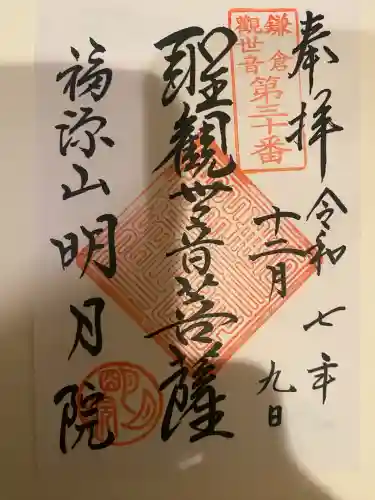 奉拝
令和七年
十二月
九日
鎌倉
觀世音
第三十番
聖観世音菩薩
福源山明月院